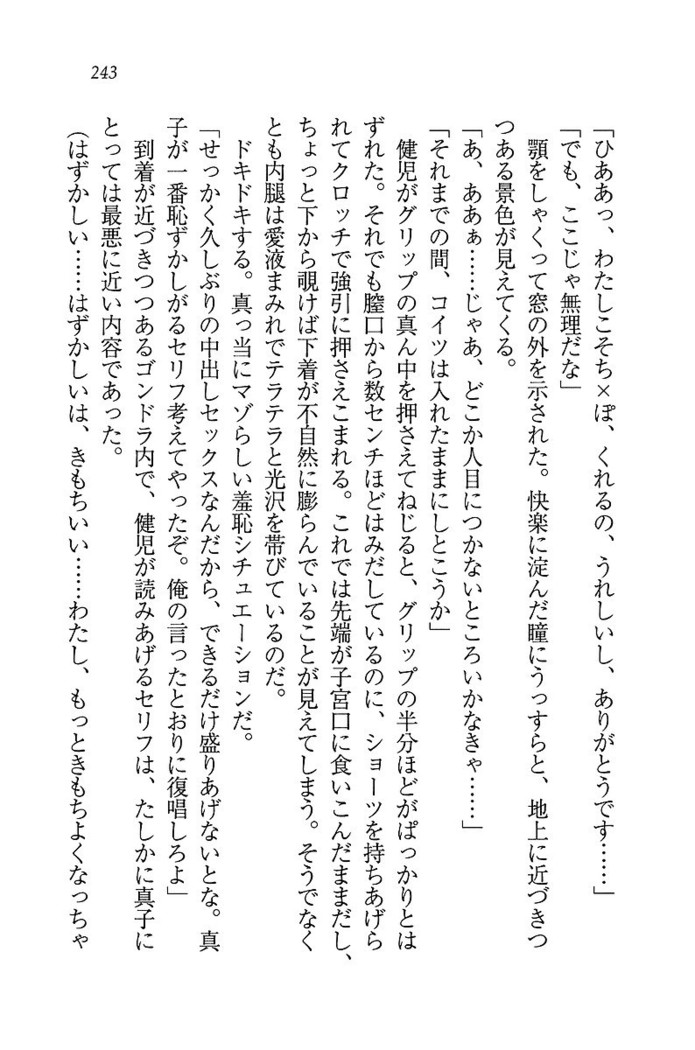 243
「ひああっ、わたしこそち×ぽ、くれるの、うれしいし、ありがとうです……」
「でも、ここじゃ無理だな」
　顎をしゃくって窓の外を示された。快楽に淀んだ瞳にうっすらと、地上に近づきつ
つある景色が見えてくる。
「あ、ああぁ……じゃあ、どこか人目につかないところいかなきゃ……」
「それまでの間、コイツは入れたままにしとこうか」
　健児がグリップの真ん中を押さえてねじると、グリップの半分ほどがぱっかりとは
ずれた。それでも膣口から数センチほどはみだしているのに、ショーツを持ちあげら
れてクロッチで強引に押さえこまれる。これでは先端が子宮口に食いこんだままだし、
ちょっと下から覗けば下着が不自然に膨らんでいることが見えてしまう。そうでなく
とも内腿は愛液まみれでテラテラと光沢を帯びているのだ。
　ドキドキする。真っ当にマゾらしい羞恥シチュエーションだ。
「せっかく久しぶりの中出しセックスなんだから、できるだけ盛りあげないとな。真
子が一番恥ずかしがるセリフ考えてやったぞ。俺の言ったとおりに復唱しろよ」
　到着が近づきつつあるゴンドラ内で、健児が読みあげるセリフは、たしかに真子に
とっては最悪に近い内容であった。
（はずかしい……はずかしいは、きもちいい……わたし、もっときもちよくなっちゃ